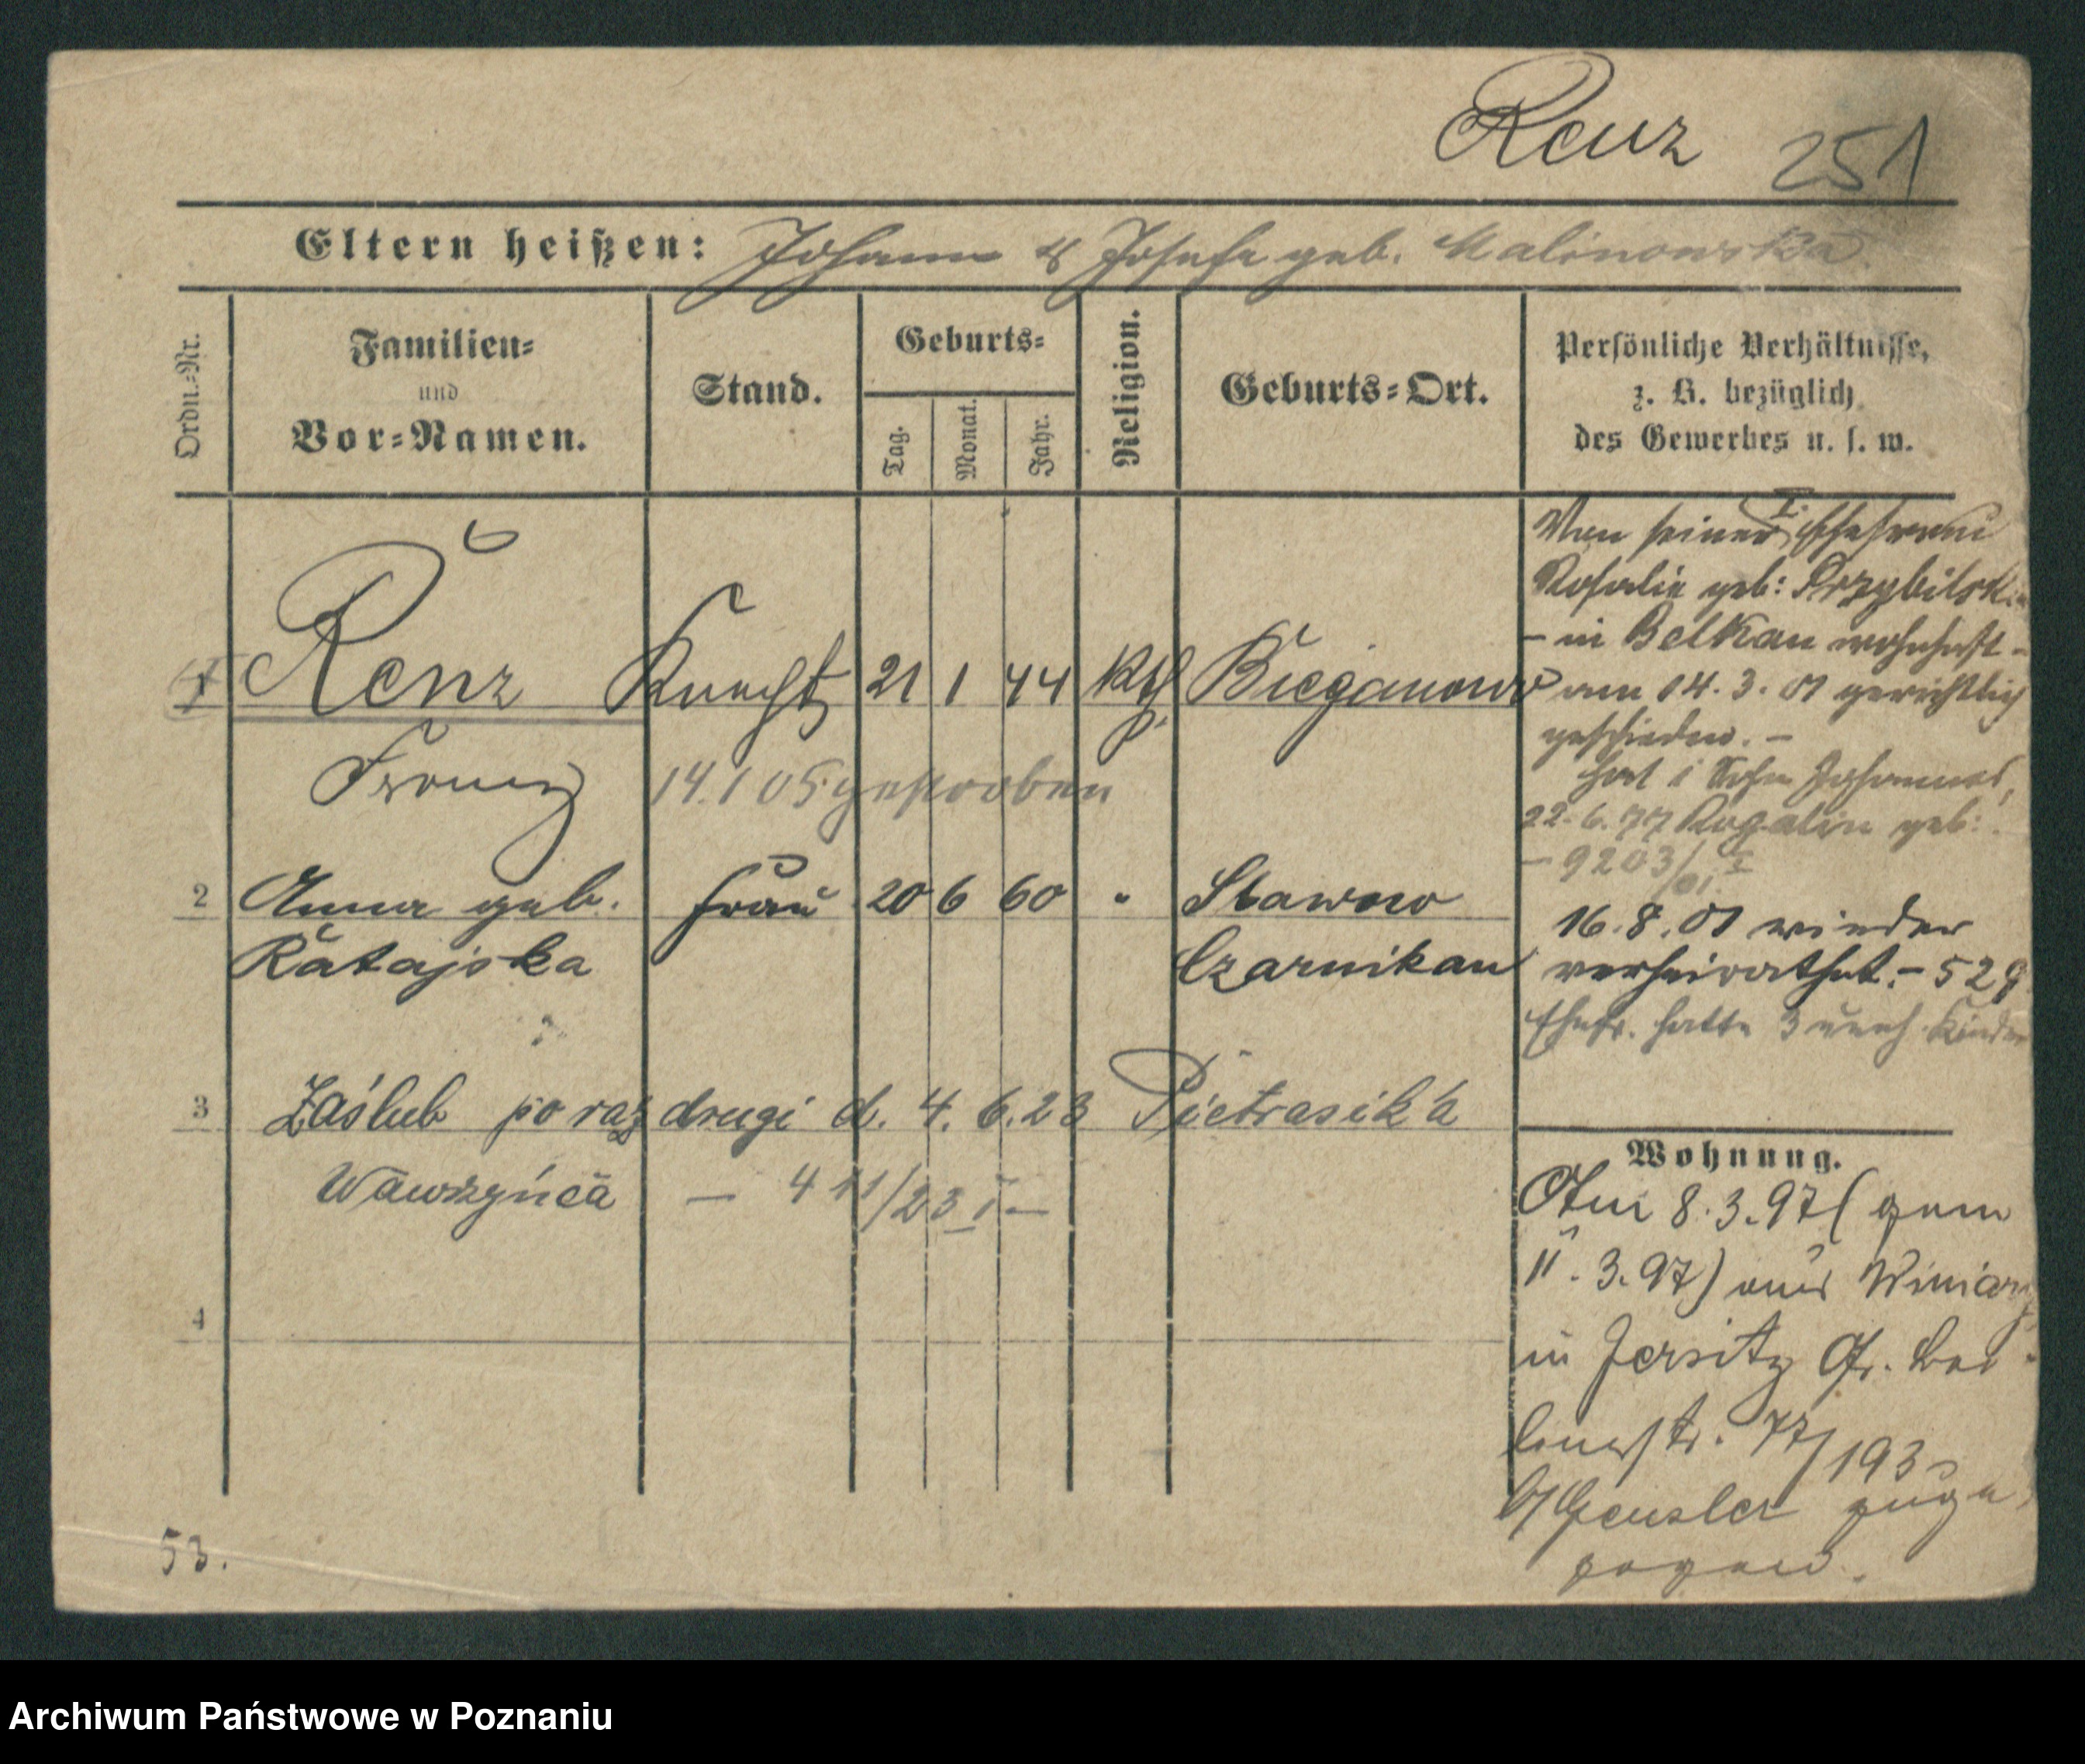 Renz 251
Eltern heißen: Johann & Josefa geb. Malinowska
Ordn.-Nr.
Familien-
und
Vor-Namen.
Stand.
Geburts-
Tag.
Monat.
Jahr.
Religion.
Geburts-Ort.
Persönliche Verhältnisse,
z. B. bezüglich
des Gewerbes u. s. w.
1 Renz Knecht 21 1 44 kth Bieganowo
Franz 14.1 05 gestorben
2 Anna geb. Frau 20 6 60 " Stawno
Ratajska Czarnikau
3 Zaślub po raz drugi d. 4. 6. 23 Pietrasika
Wawrzyńca — 411/23 I —
4
Von seiner I. Ehefrau
Rosalie geb: Przybilski
- in Belkau wohnhaft -
am 14. 3. 01 gerichtlich
geschieden. -
hat 1 Sohn Johannes,
22. 6. 77 Rogalin geb:
- 9203/01. I
16. 8. 01 wieder
verheirathet. - 529
Ehefr. hatte 3 uneh. Kinder
Wohnung.
Am 8. 3. 97 (gem
11. 3. 97) aus Winiary
in Jersitz Gr. Ber-
linerstr. 77/193
b/Gensler zuge
zogen.
53.
Archiwum Państwowe w Poznaniu